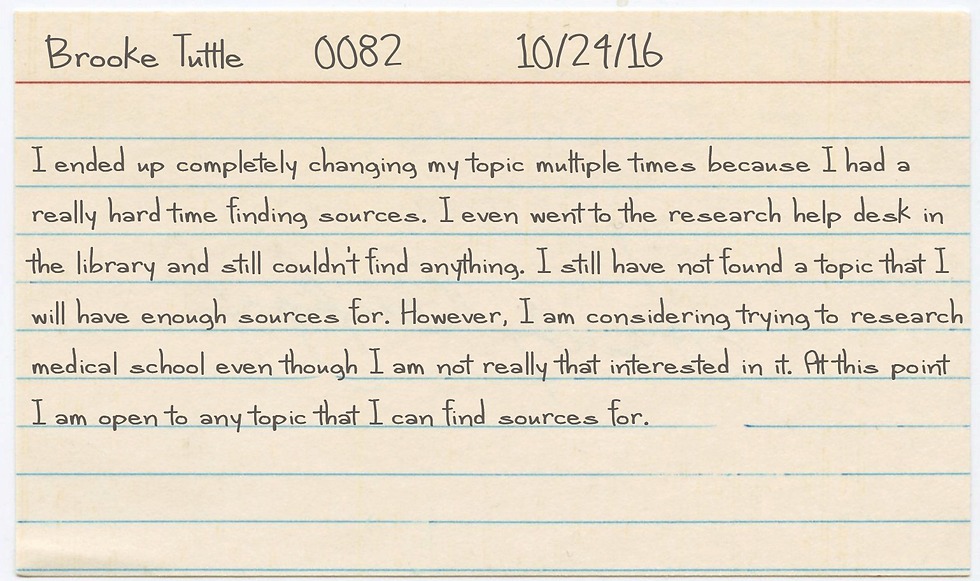 Brooke Tuttle 0082 10/24/16
I ended up completely changing my topic multiple times because I had a
really hard time finding sources. I even went to the research help desk in
the library and still couldn't find anything. I still have not found a topic that I
will have enough sources for. However, I am considering trying to research
medical school even though I am not really that interested in it. At this point
I am open to any topic that I can find sources for.